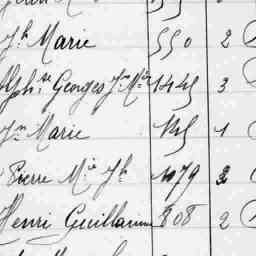 Jh Marie 550 2
Alphse Georges Jn Mie 1445 3
Jn Marie 1
Pierre Mie Jh 1079
Henri Guillaume 808 2